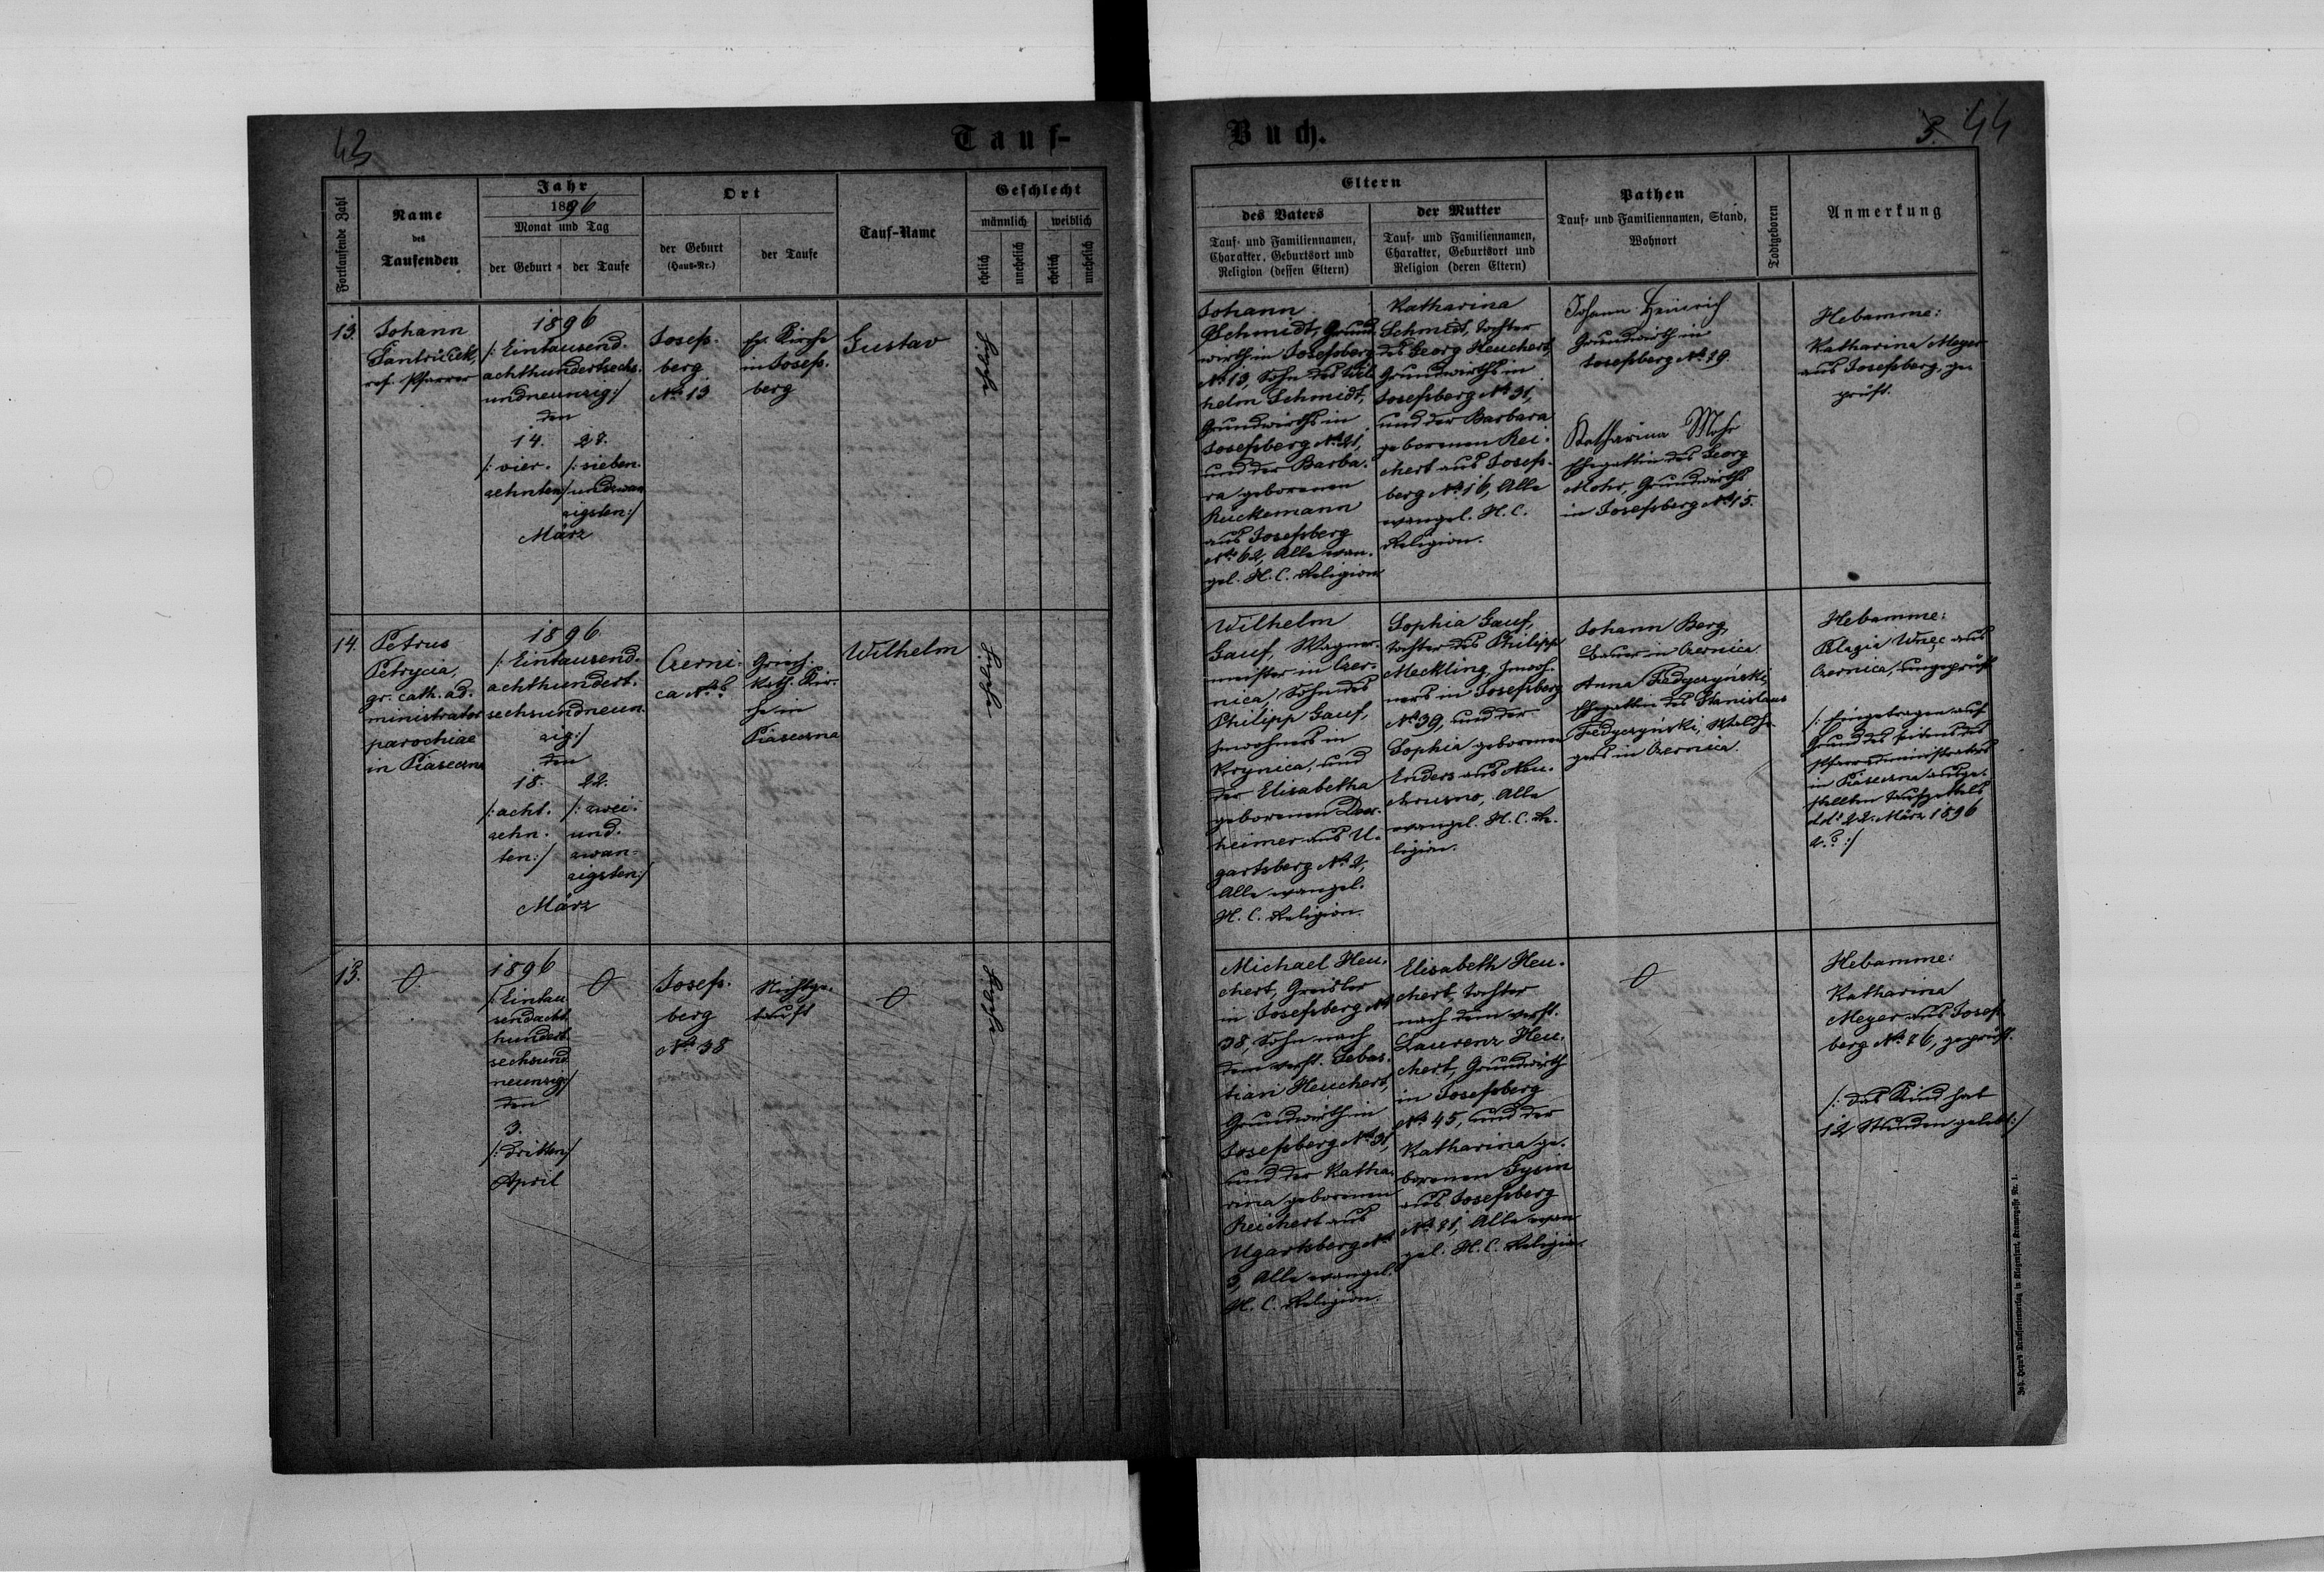 43
Tauf-
Fortlaufende Zahl
Name
des
Taufenden
Jahr
1896
Monat und Tag
der Geburt
der Taufe
Ort
der Geburt
(Haus-Nr.)
der Taufe
Tauf-Name
Geschlecht
männlich
weiblich
ehelich
unehelich
ehelich
unehelich
13.
Johann
Fantrišek,
ref. Pfarrer
1896
/: Eintausend-
achthundertsechs-
undneunzig:/
den
14.
/: vier-
zehnten:/
27.
/: sieben-
undzwan
zigsten:/
März
Josefs-
berg
No 13
ev. Kirche
in Josefs-
berg
Gustav
ehelich
14.
Petrus
Petrycia,
gr. cath. ad-
ministrator
parochiae
in Piaseczna
1896
/: Eintausend-
achthundert-
sechsundneun-
zig:/
den
18.
/: acht-
zehn-
ten:/
22.
/: zwei-
und-
zwan-
zigsten:/
März
Czerni-
ca No
Griech.
Kath. Kir-
che in
Piaseczna
Wilhelm
ehelich
15.
0
1896
/: Eintau
sendacht
hundert
sechsund
neunzig:/
den
3.
/: Dritten:/
April
0
Josefs-
berg
No 38
Nichtge-
tauft
0
ehelich
Buch.
3. 44
Eltern
des Vaters
Tauf- und Familiennamen,
Charakter, Geburtsort und
Religion (dessen Eltern)
der Mutter
Tauf- und Familiennamen,
Charakter, Geburtsort und
Religion (deren Eltern)
Pathen
Tauf- und Familiennamen, Stand,
Wohnort
Todtgeboren
Anmerkung
Johann
Schmidt, Grund-
wirth in Josefsberg
No 13, Sohn des Wil-
helm Schmidt,
Grundwirths in
Josefsberg No 21,
und der Barba-
ra geborenen
Rückemann
aus Josefsberg
No 62, Alle evan-
gel. H. C. Religion
Katharina
Schmidt, Tochter
des Georg Heuchert,
Grundwirths in
Josefsberg No 31,
und der Barbara
geborenen Rei-
chert aus Josefs-
berg No 16, Alle
evangel. H. C.
Religion.
Johann Heinrich
Grundwirth in
Josefsberg No 79.
Katharina Mohr
Ehegattin des Georg
Mohr, Grundwirths
in Josefsberg No 15.
Hebamme:
Katharina Meyer
aus Josefsberg, ge-
prüft.
Wilhelm
Gauf, Wagner-
meister in Czer-
nica, Sohn des
Philipp Gauf,
Inwohners in
Krynica, und
der Elisabetha
geborenen
heimer aus U-
gartsberg No 2,
Alle evangel.
H. C. Religion.
Sophia Gauf,
Tochter des Philipp
Meckling, Inwoh-
ners in Josefsberg
No 39, und der
Sophia geborenen
Enders aus Neu-
chrusno, Alle
evangel. H. C. Re-
ligion.
Johann Berg,
Bauer in Czernica
Anna Fedyczyński,
Ehegattin des Stanislaus
Fedyczyński, Waldhe-
gers in Czernica.
Hebamme:
Pelagia Wnęc aus
Czernica, ungeprüft
/: Eingetragen auf
Grund des seitens des
Pfarradministrators
in Piaseczna ausge-
stellten Taufzettels
ddo 22. März 1896
:/
Michael Heu-
chert, Greisler
in Josefsberg No
38, Sohn nach
dem verst. Sebas-
tian Heuchert,
Grundwirth in
Josefsberg No 31,
und der Katha-
rina geborenen
Reichert aus
Ugartsberg No
3, Alle evangel.
H. C. Religion.
Elisabeth Heu-
chert, Tochter
nach dem verst.
Laurenz Heu-
chert, Grundwirth
in Josefsberg
No 45, und der
Katharina ge-
borenen Gysin
aus Josefsberg
No 71, Alle evan-
gel. H. C. Religion.
0
Hebamme:
Katharina
Meyer aus Josefs-
berg No 76, geprüft.
/: Das Kind hat
12 Stunden gelebt:/